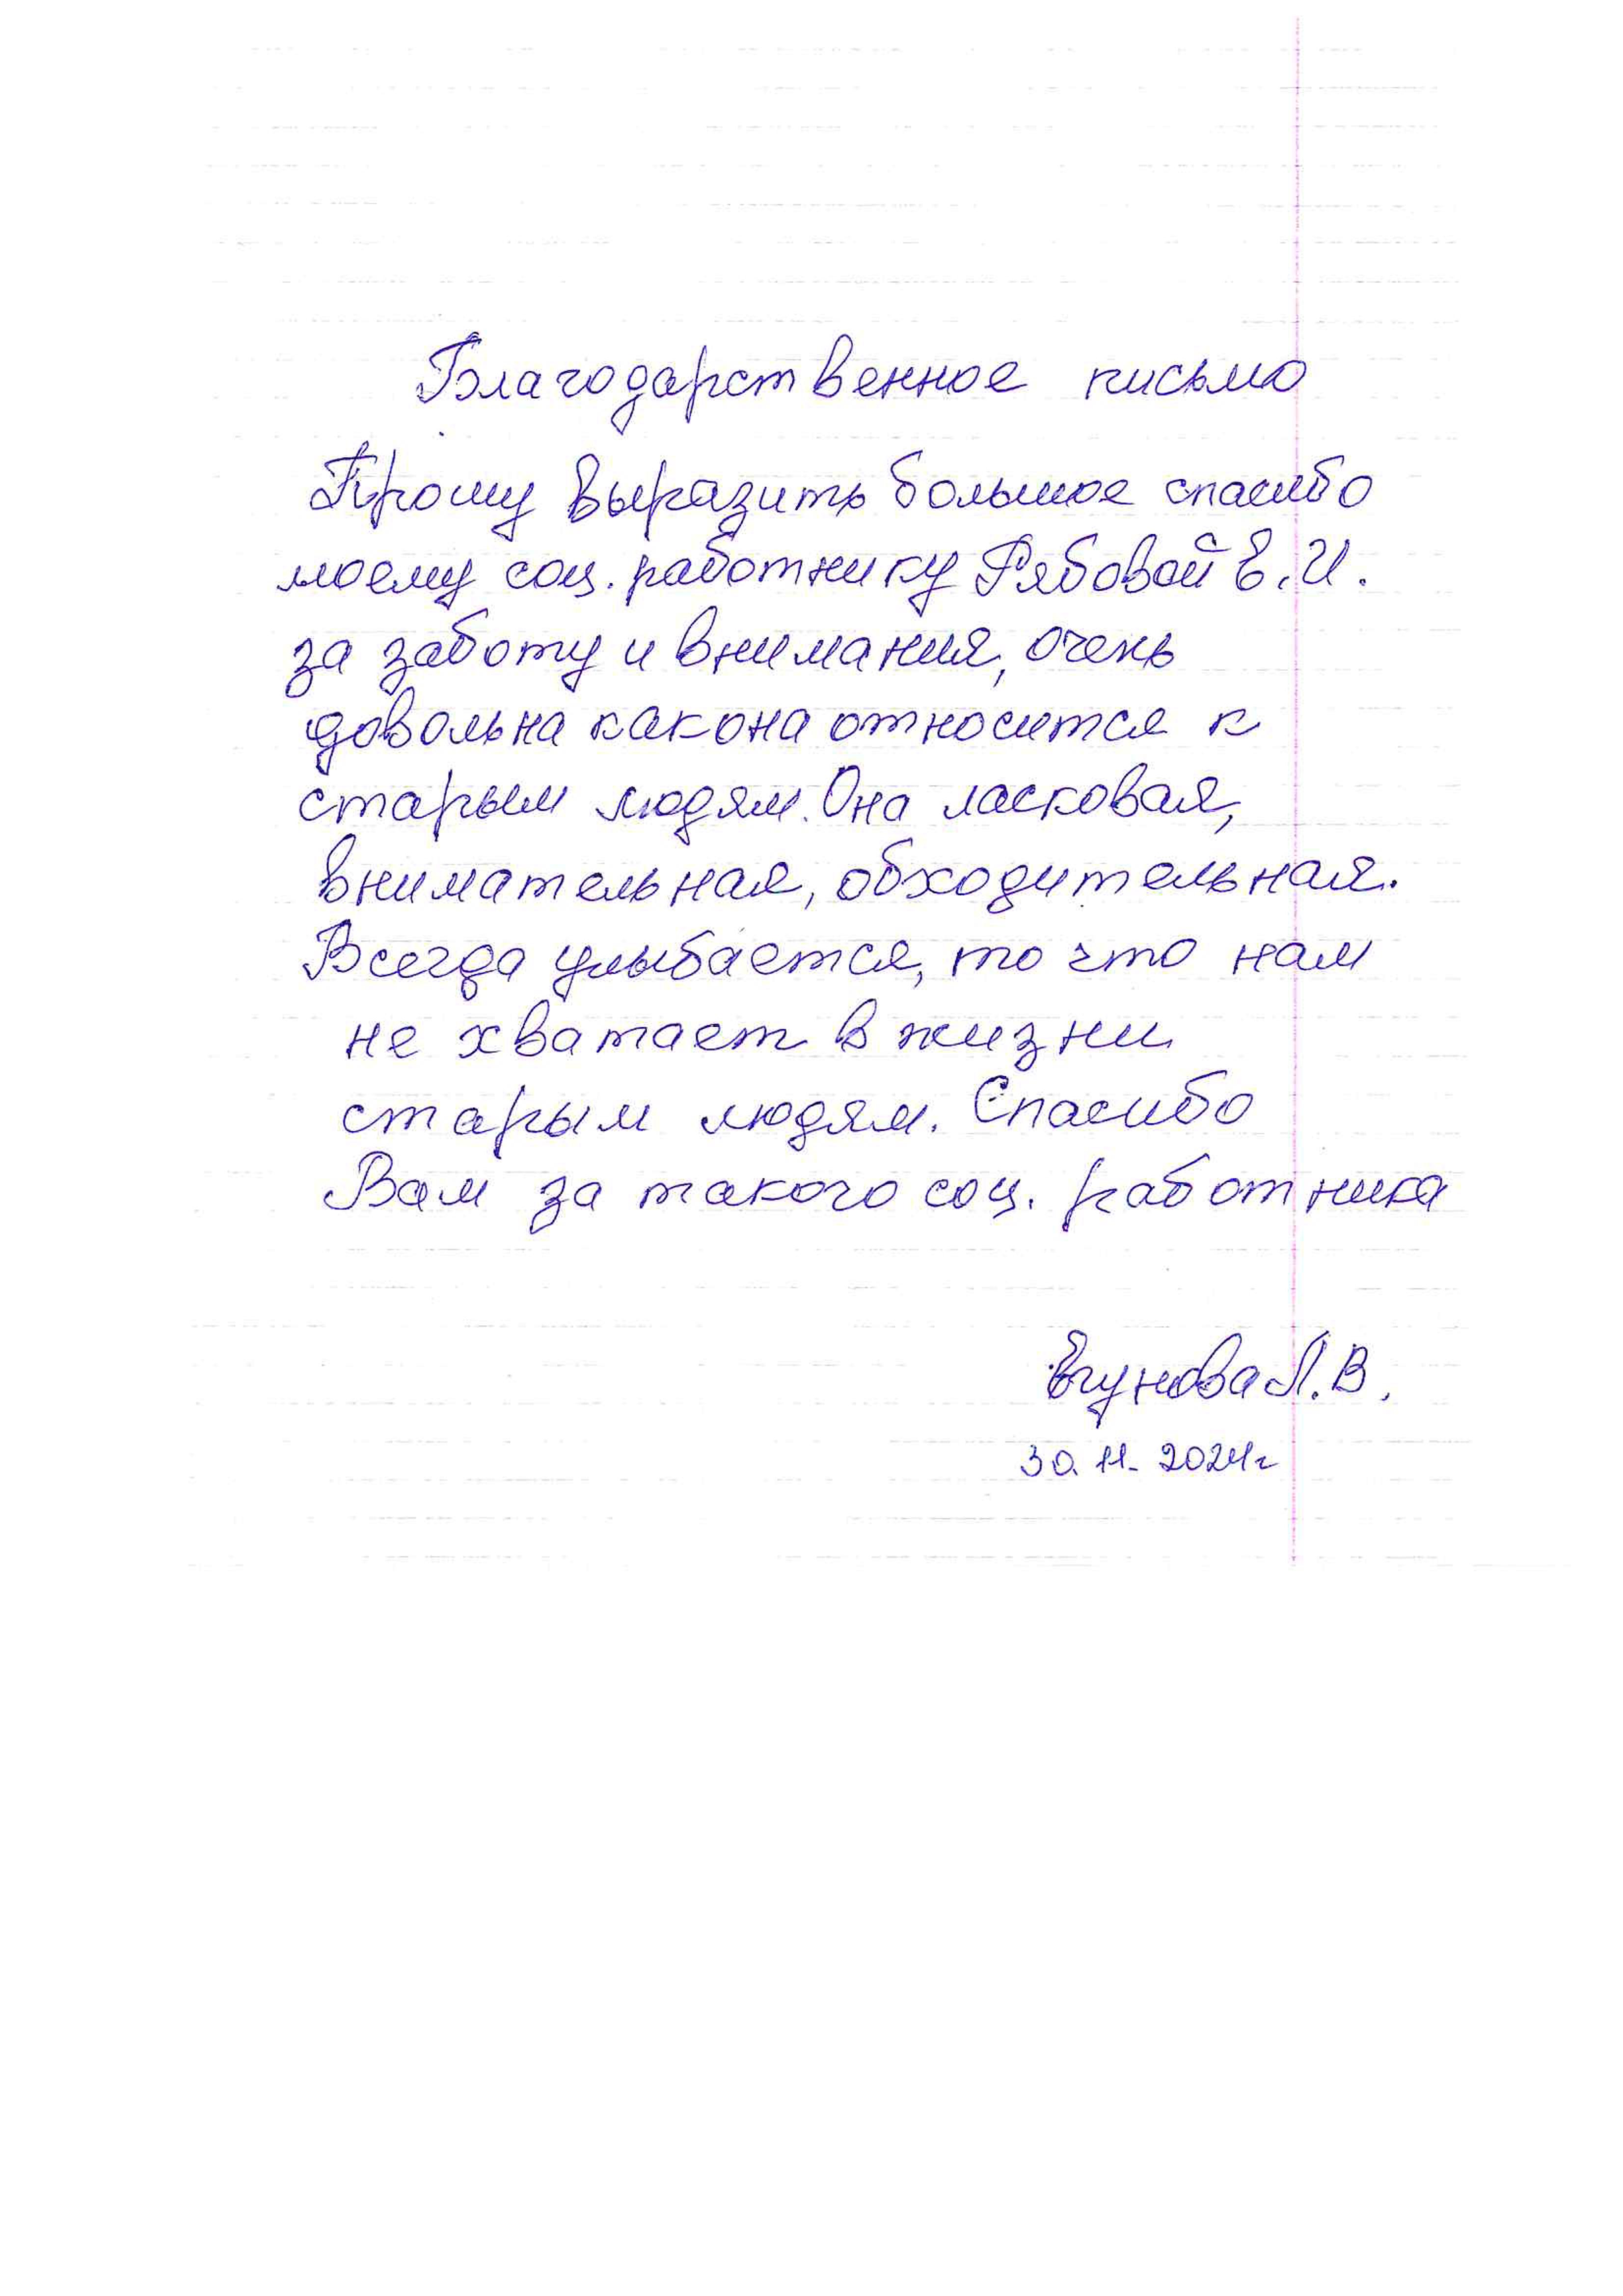 Благодарственное письмо
Прошу выразить большое спасибо
моему соц. работнику Рябовой Е. И.
за заботу и внимания, очень
довольна как она относится к
старым людям. Она ласковая,
внимательная, обходительная.
Всегда улыбается, то что нам
не хватает в жизни
старым людям. Спасибо
Вам за такого соц. работника
Егунова Л. В.
30. 11. 2024г